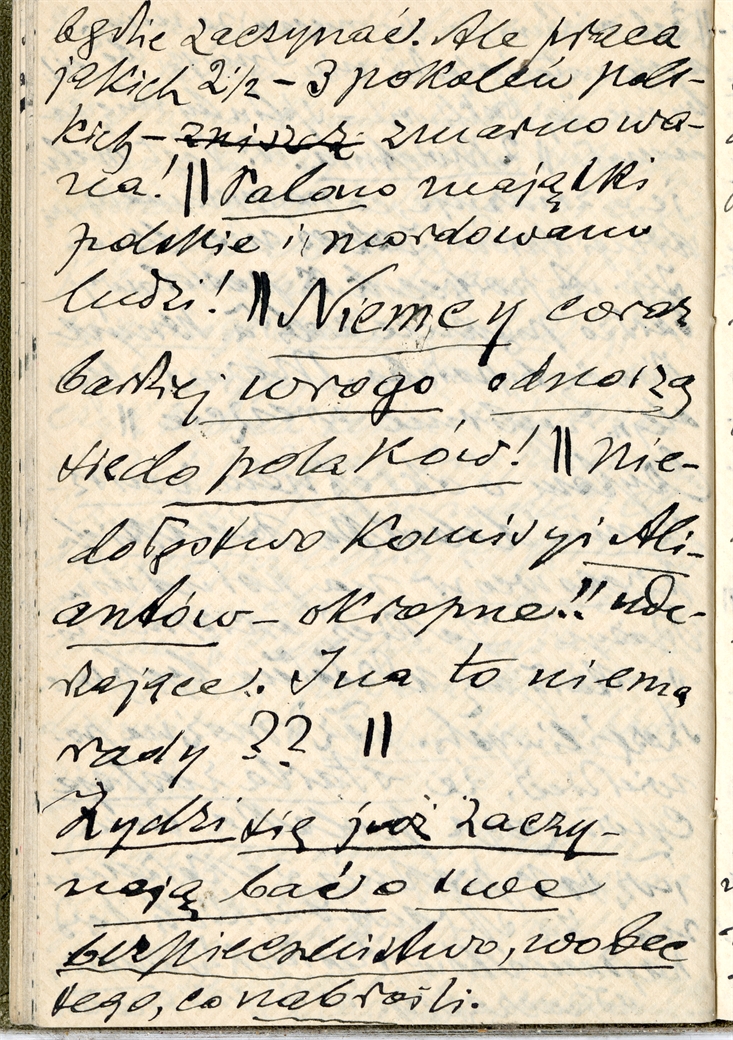 będzie zaczynać. Ale praca
jakich 2½ – 3 pokoleń pols-
kich – zniszcz zmarnowa-
na! || Palono majątki
polskie i mordowano
ludzi! || Niemcy coraz
bardziej wrogo odnoszą
się do polaków! || Nie-
dołęstwo Komisyi Ali-
antów – okropne!! ude-
rzające. I na to niema
rady ?? ||
Żydzi się już zaczy-
nają bać o swe
bezpieczeństwo, wobec
tego, co nabroili.